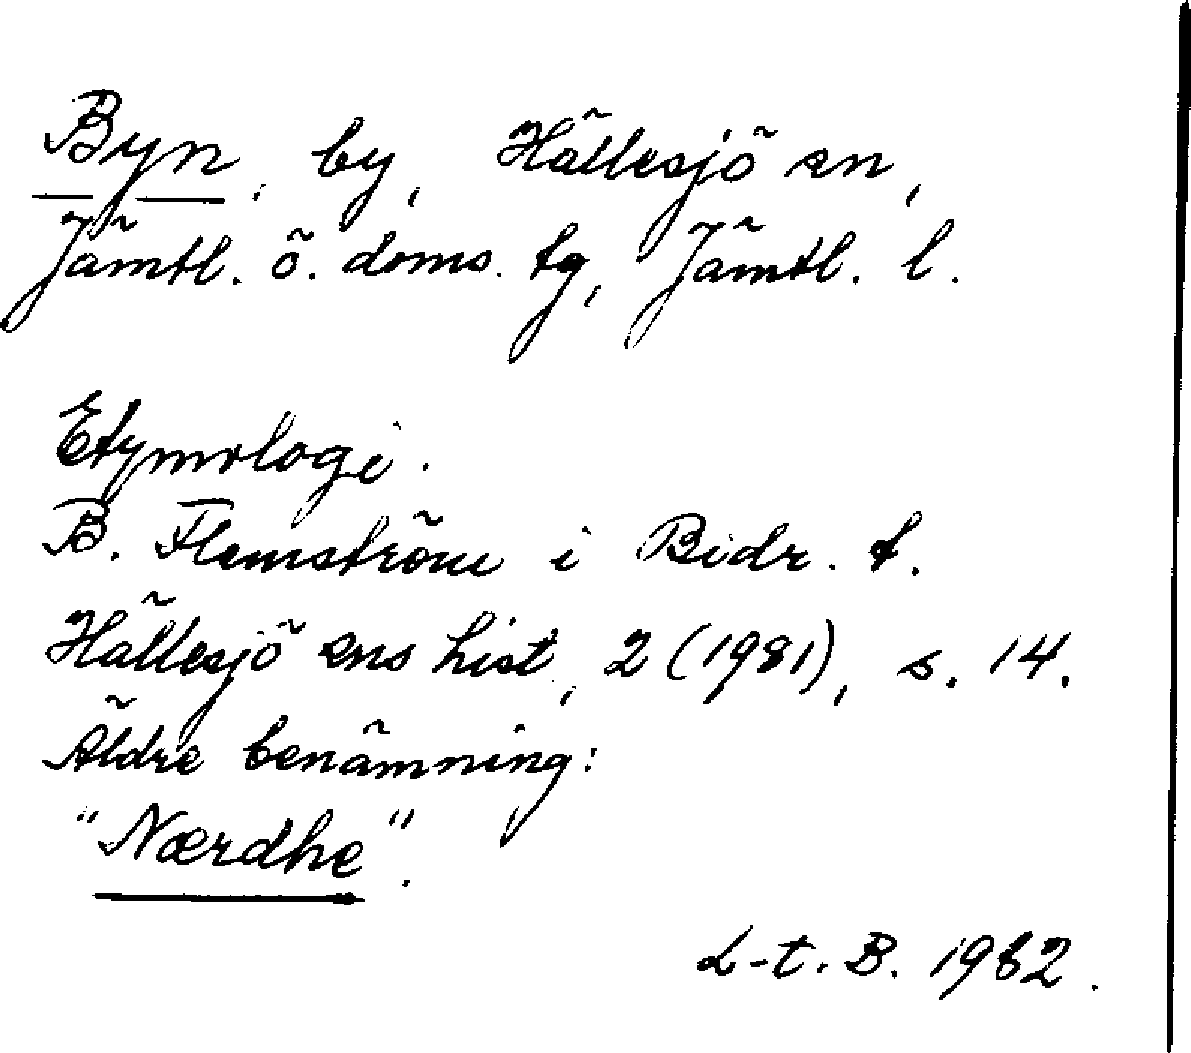 Byn, by, Hällesjö sn,
Jämtl. ö. doms. tg, Jämtl. l.
Etymologi.
B. Flemström i Bidr. t.
Hällesjö sns hist, 2 (1981), s. 14.
Äldre benämning:
"Nærdhe".
L-t. B. 1982.